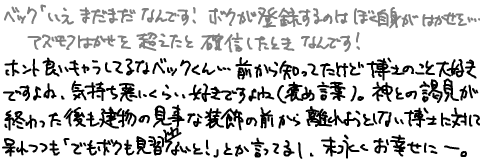 ベック「いえ まだまだ なんです! ボクが登録するのは ぼく自身が はかせを…
アズモフはかせを 超えたと 確信したとき なんです!
ホント良いキャラしてるなベックくん…前から知ってたけど博士のこと大好き
ですよね、気持ち悪いくらい好きですよね(褒め言葉)。神との謁見が
終わった後も建物の見事な装飾の前から離れようとしない博士に対して
呆れつつも「でもボクも見習わないと!」とか言ってるし、末永くお幸せにー。